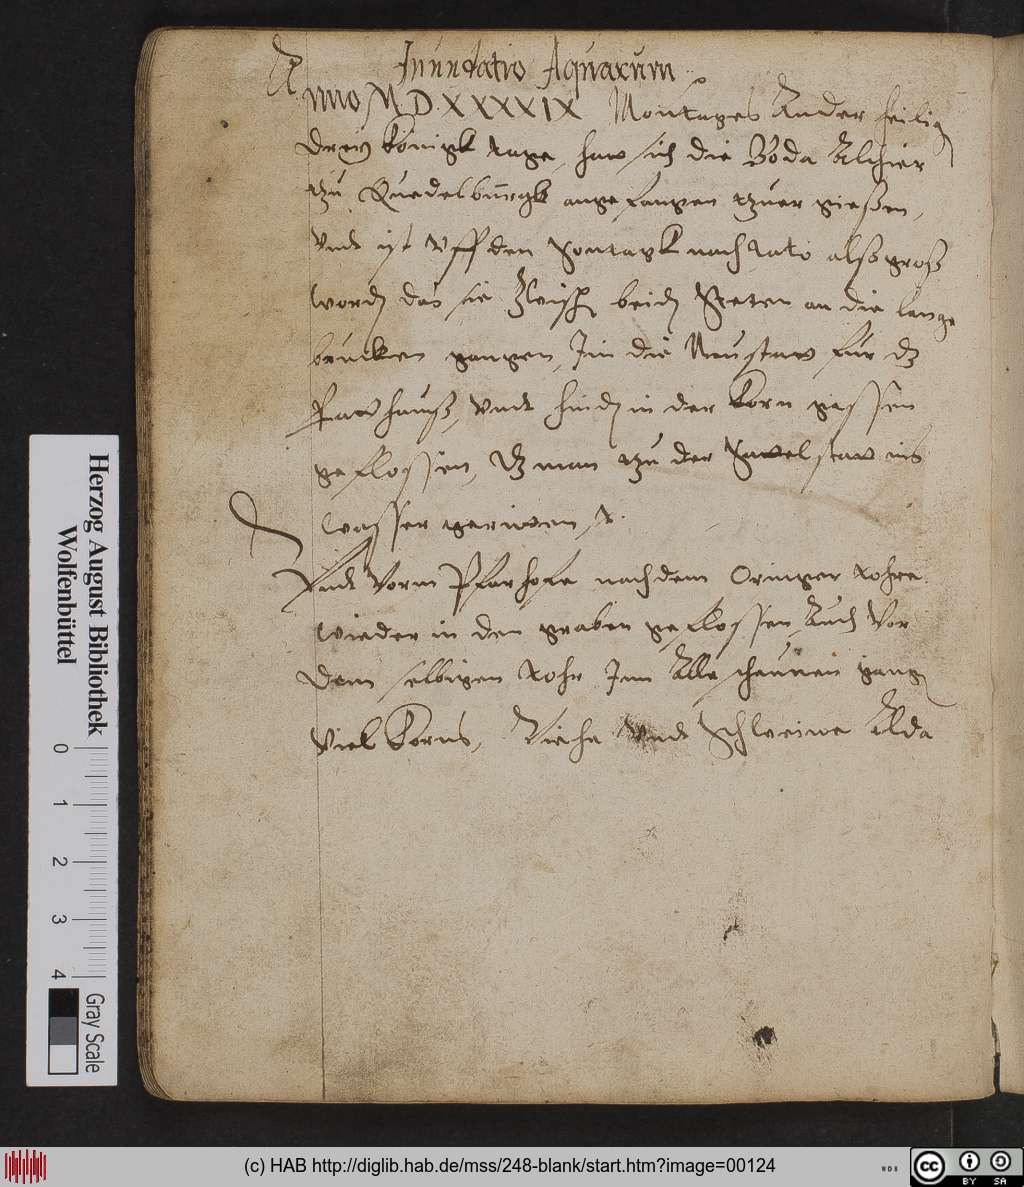 Inundatio Aquarum
Anno M D XXXXIX Montages Ander heilig
dreij Konigk tage, haw sich die Boda Alhier
tzu Quedelburgk angefangen tzuer gießen,
Vndt ist vff den Sontagk nach alß groß
word das sie beid Steten an die lange
brucken gangen, Inn die Neustaw fur dz
Rawthauß, Vndt hind in der Korn gassen
geflossen, dz man tzu der staw ins
Wasser
Vndt Vorm Pfarhofe nach dem Oringer tohre
wieder in den graben geflossen, Auch Vor
dem selbigen tohr Inn Alle scheunen gang
Viel Korns, Viehe Vndt Schweine Alda
Herzog August Bibliothek
Wolfenbüttel
0 1 2 3 4
Gray Scale
(c) HAB http://diglib.hab.de/mss/248-blank/start.htm?image=00124
WDB
cc BY SA